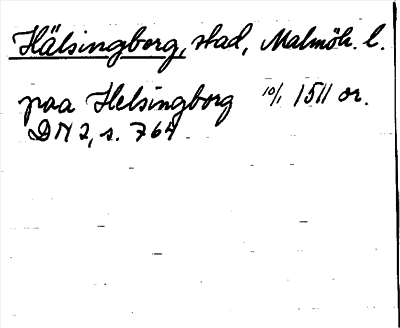 Hälsingborg, stad, Malmöh. l.
paa Helsingborg 10/1 1511 or.
DN 2, s. 764